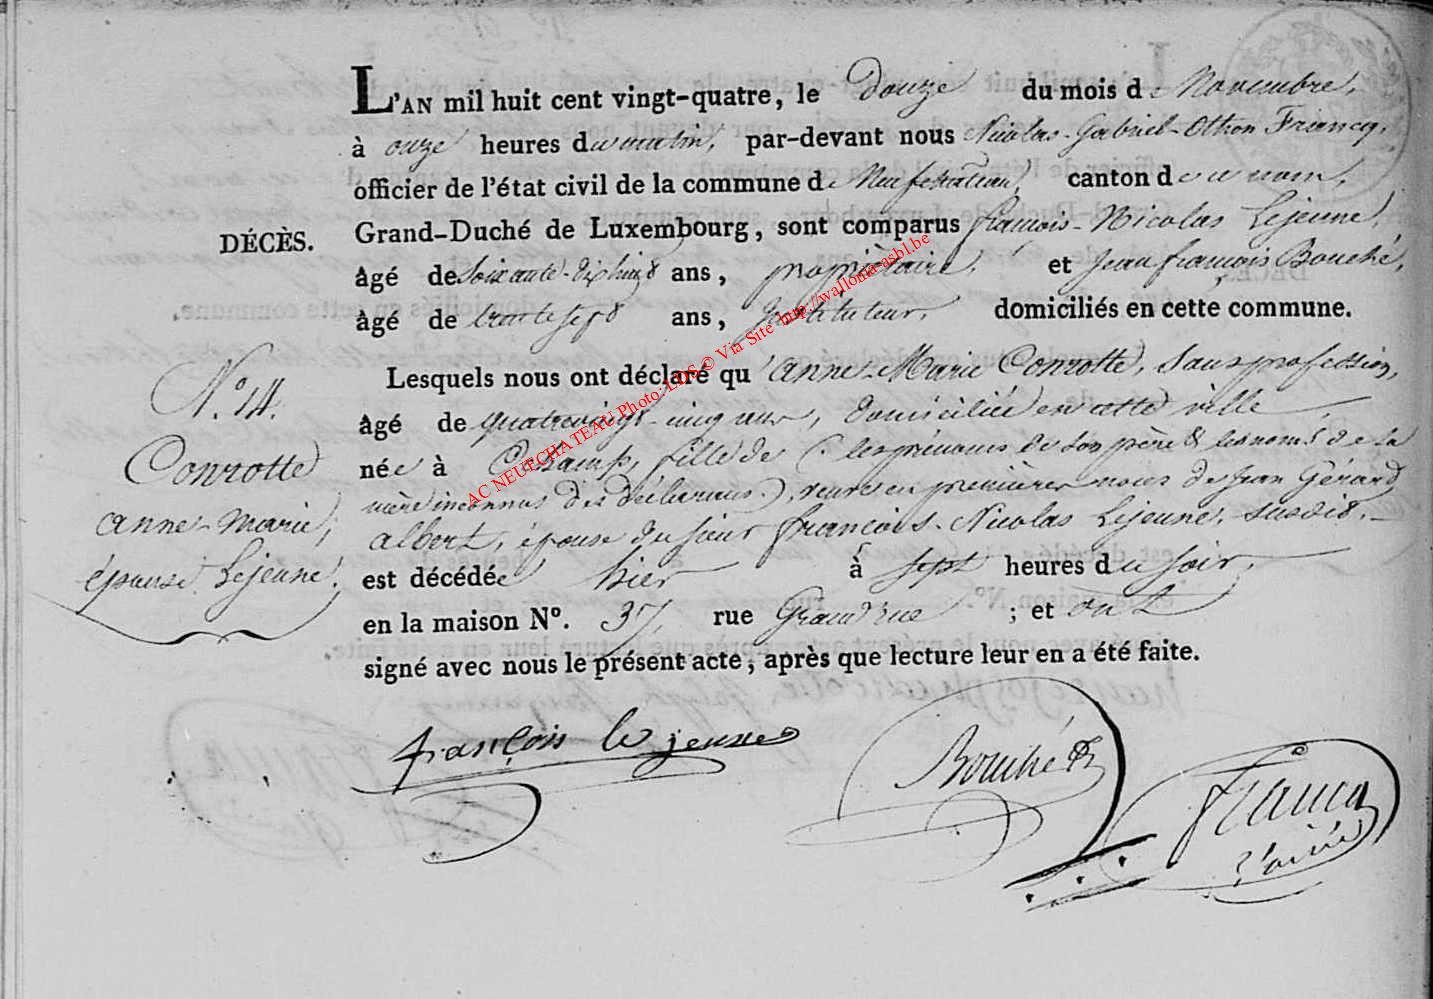 L'AN mil huit cent vingt-quatre, le Douze du mois de Novembre,
à onze heures du matin, par-devant nous Nicolas-Gabriel-Othon Francq,
officier de l'état civil de la commune de Neufchâteau, canton de ce nom,
DÉCÈS.
Grand-Duché de Luxembourg, sont comparus françois-Nicolas Lejeune,
âgé de Soixante-dix huit ans, propriétaire, et Jean françois Bouché,
âgé de trente sept ans, Instituteur, domiciliés en cette commune.
N.° 14.
Conrotte
anne-marie,
épouse Lejeune.
Lesquels nous ont déclaré qu'anne-Marie Conrotte, sans profession,
âgé de quatrevingt-cinq ans, domiciliée en cette ville
née à fille de (les prénoms de son père & les noms de la
mère inconnus des déclarans), veuve en premières noces de Jean Gérard
albert, épouse du sieur françois-Nicolas Lejeune, susdit,
est décédée hier à sept heures du soir,
en la maison N°. 37, rue Grand'rue ; et ont
signé avec nous le présent acte, après que lecture leur en a été faite.
françois le jeune
Bouché
Francq
l'ainé
AC NEUFCHATEAU Photo: LDS © Via Site http://wallonia-asbl.be